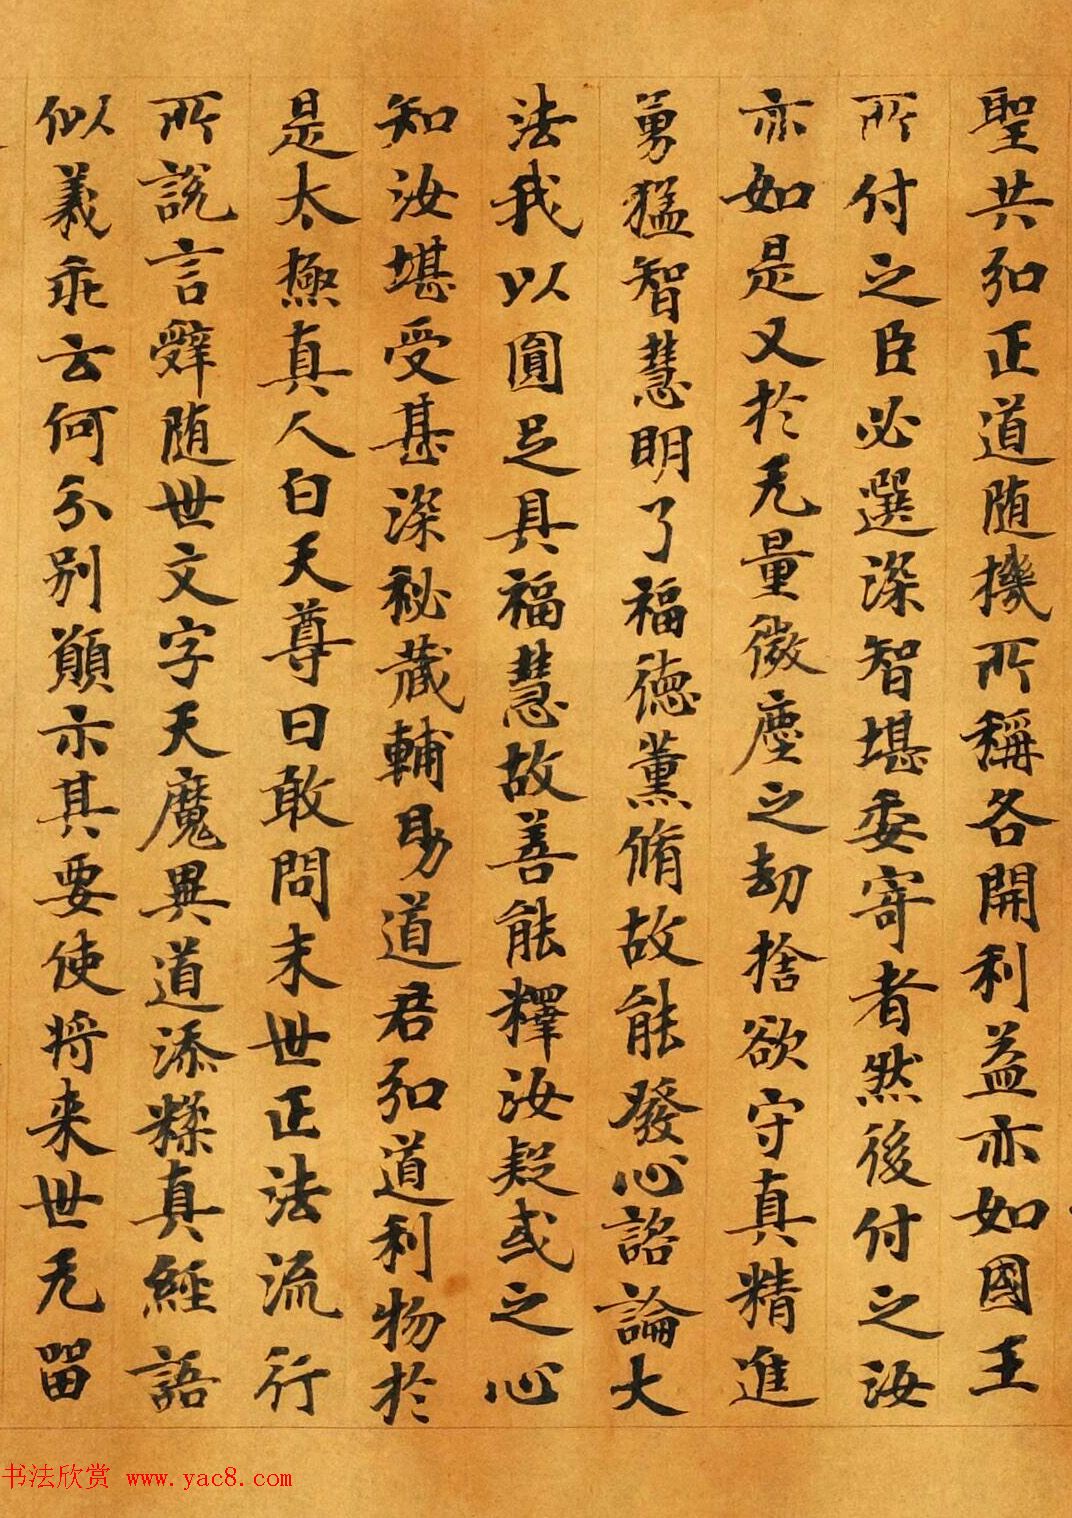 聖共弘正道随機所稱各開利益亦如國王
所付之臣必選深智堪委寄者然後付之汝
亦如是又於无量微塵之劫捨欲守真精進
勇猛智慧明了福德薰脩故能發心諮論大
法我以圓足具福慧故善能釋汝疑或之心
知汝堪受甚深祕蔵輔助道君弘道利物於
是太極真人白天尊曰敢問末世正法流行
所說言辤随世文字天魔異道添糅真經語
似義乖云何分别願示其要使将来世无留
书法欣赏 www.yac8.com